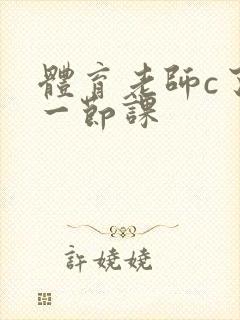 體育老師c了
一節課
許嬈嬈